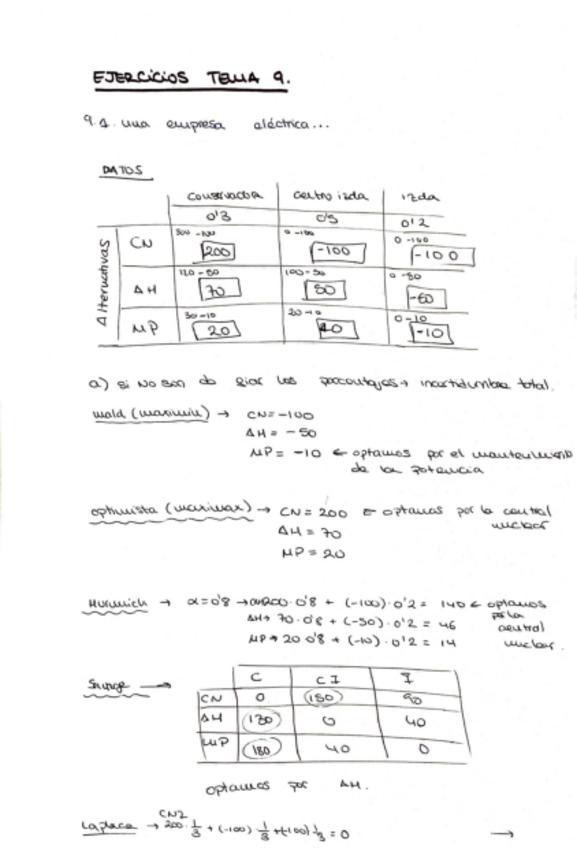 EJERCICIOS TEMA 9.
9.1. una empresa eléctrica...
DATOS
conservadora centro izda izda
0'3 0'5 0'2
Alternativas
CN 300 -100 200 0 -100 -100 0 -100 -100
AH 120 - 50 70 100 - 50 50 0 -50 -50
MP 30 - 10 20 20 - 10 10 0 - 10 -10
a) si no son de fiar los porcentajes → incertidumbre total.
Wald (maximin) → CN = -100
AH = - 50
MP = -10 ← optamos por el mantenimiento
de la potencia
optimista (maximax) → CN = 200 ← optamos por la central
nuclear
AH = 70
MP = 20
Hurwich → α=0'8 → 200·0'8 + (-100)·0'2 = 140 ← optamos
por la
AH → 70·0'8 + (-50)·0'2 = 46
central
MP → 20 0'8 + (-10)·0'2 = 14
nuclear.
Savage →
C CI I
CN 0 150 90
AH 130 0 40
MP 180 40 0
optamos por AH.
Laplace → 200·1/3 + (-100) 1/3 + (-100) 1/3 = 0 →